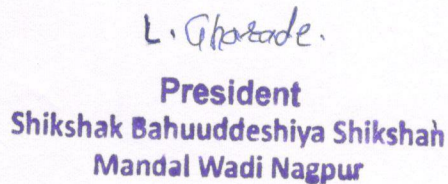 L. Gharade.
President
Shikshak Bahuuddeshiya Shikshan
Mandal Wadi Nagpur